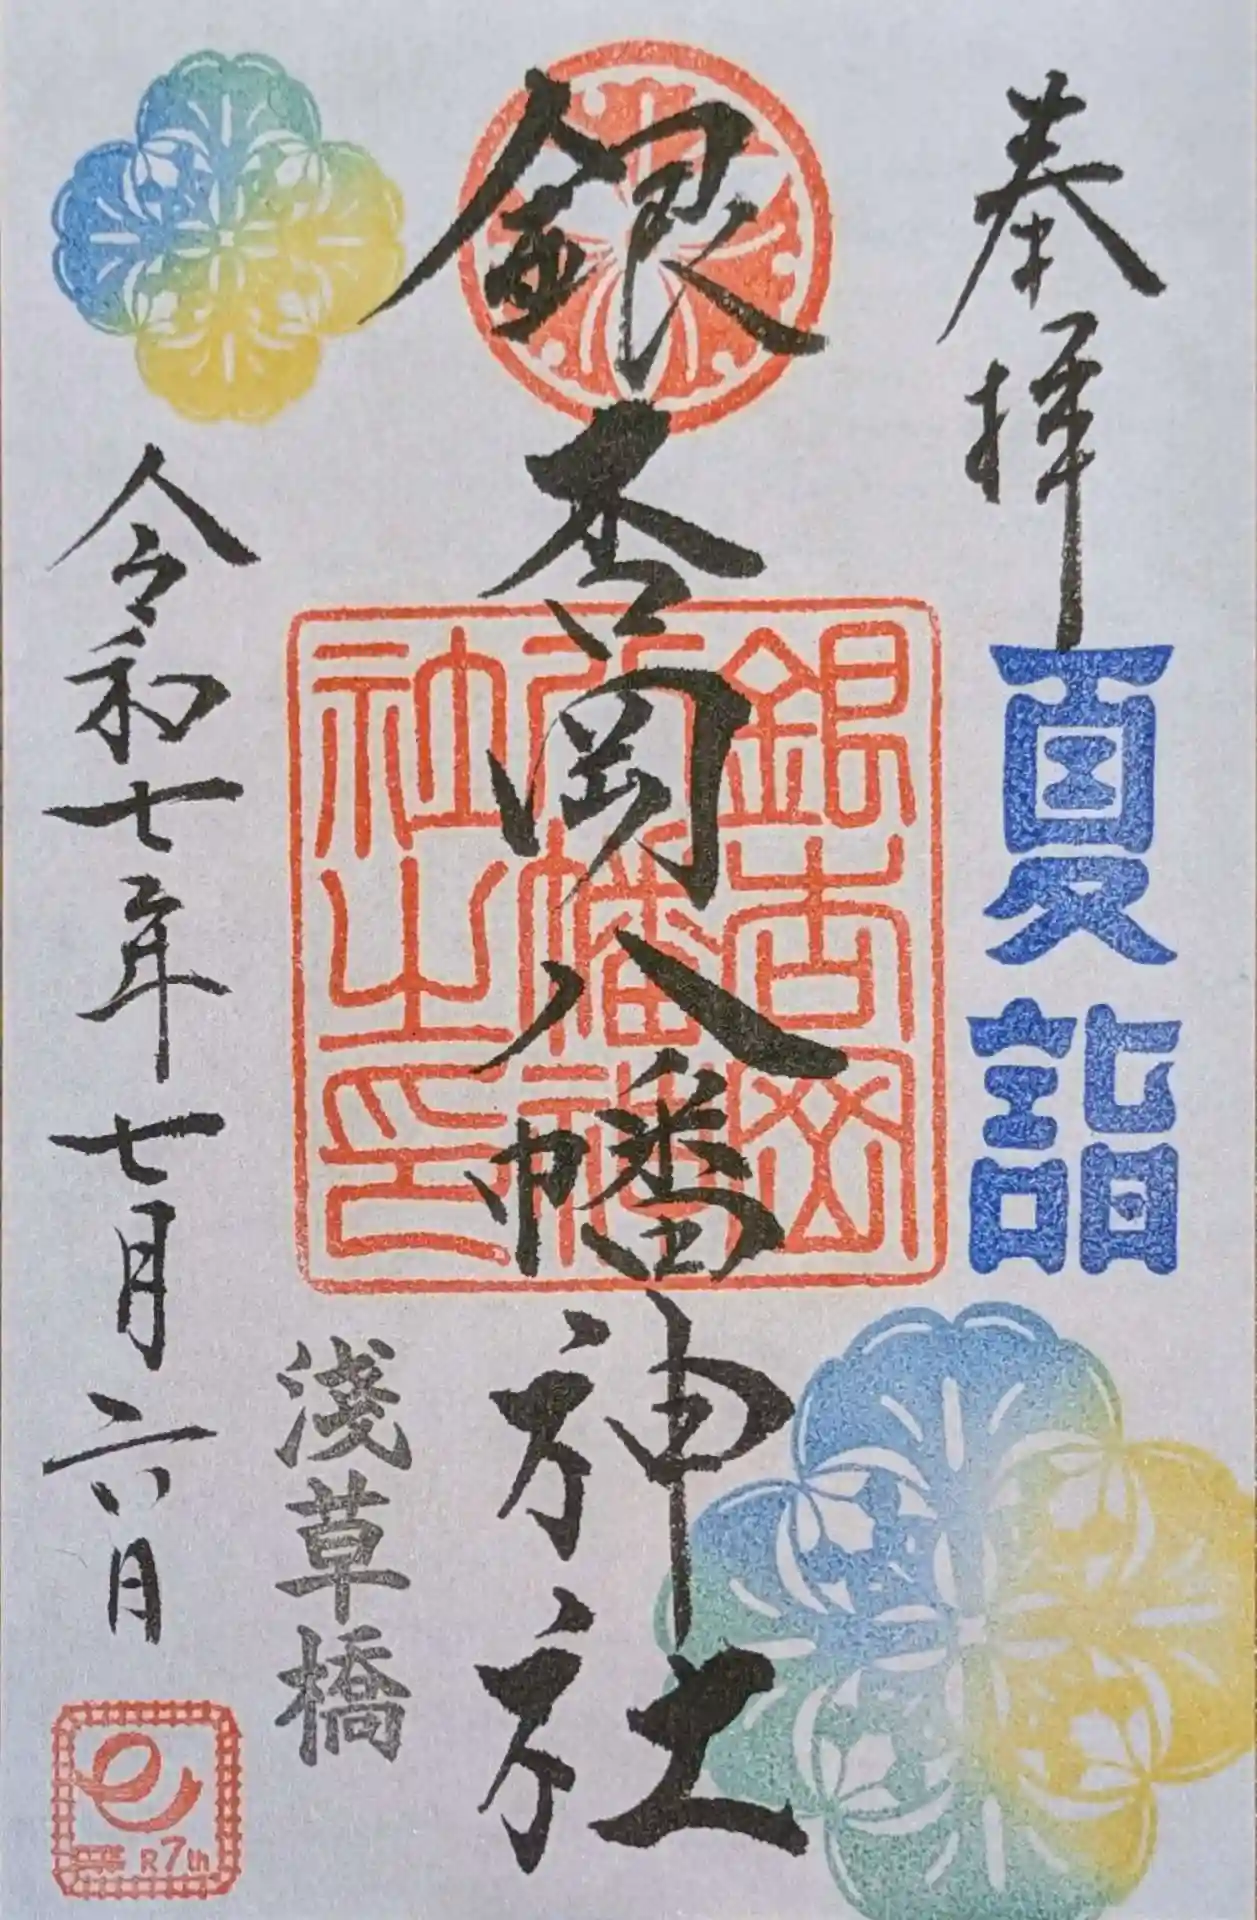 奉拝
夏詣
銀杏岡八幡神社
銀杏岡
八幡神
社之印
浅草橋
令和七年七月六日
巳 R7th